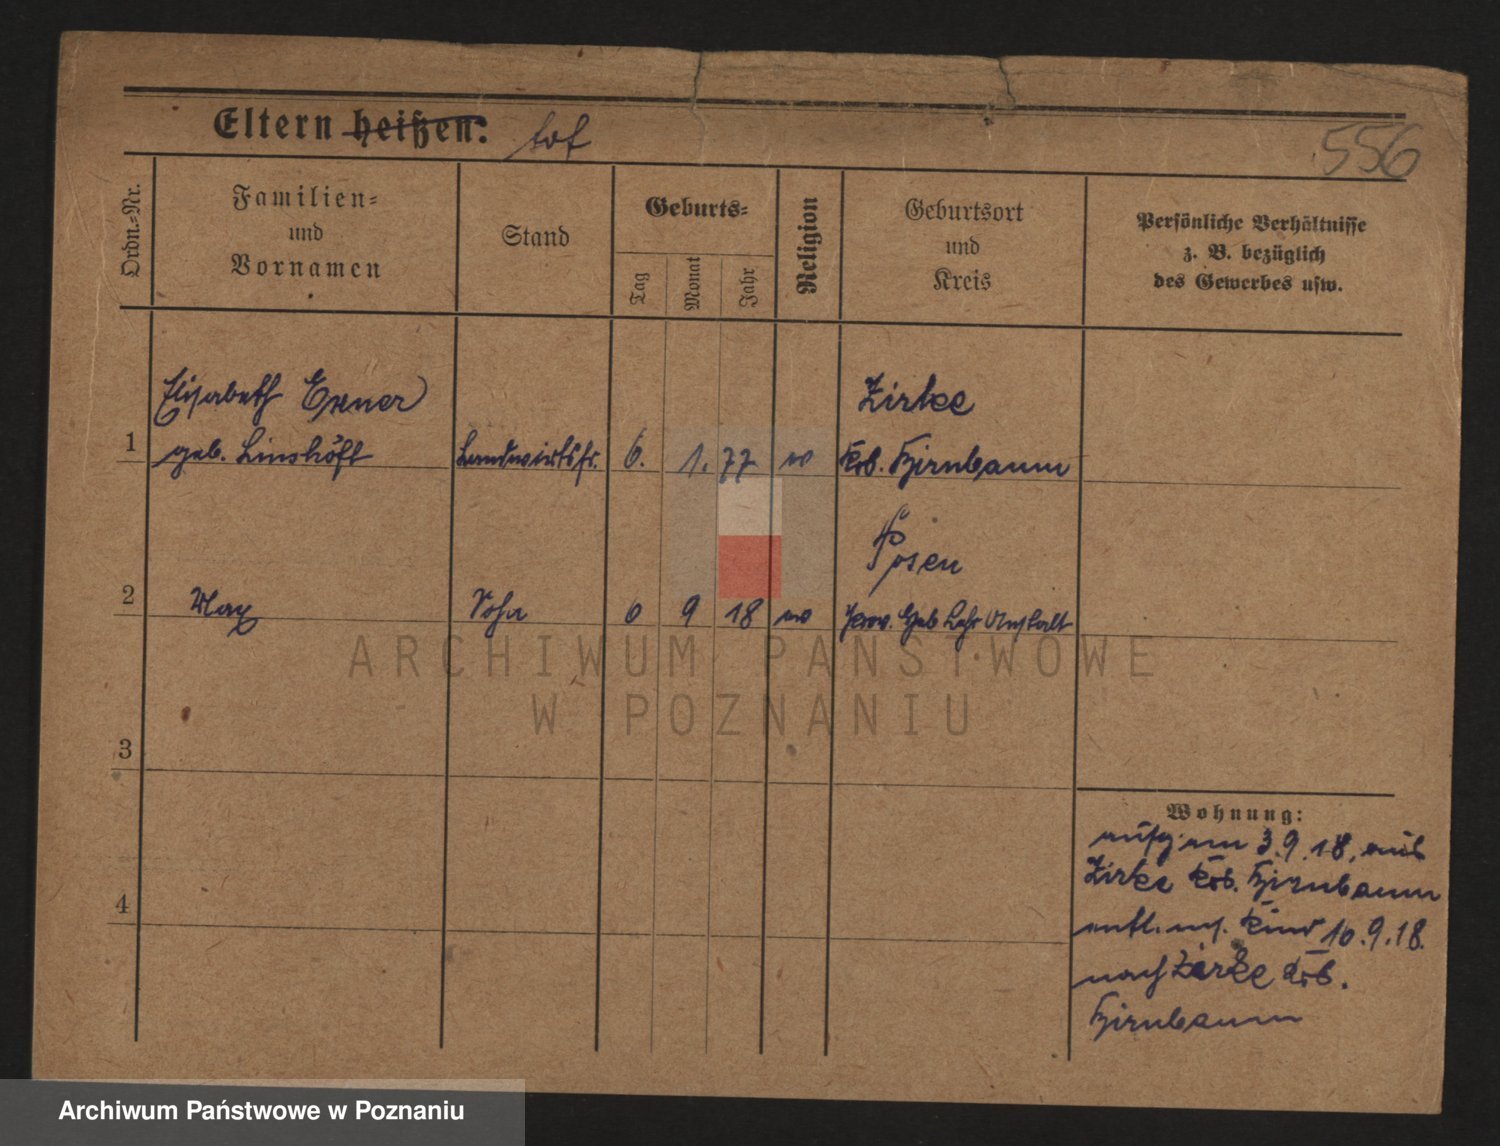 Eltern heißen: tot
556
Ordn.-Nr.
Familien-
und
Vornamen
Stand
Geburts-
Tag
Monat
Jahr
Religion
Geburtsort
und
Kreis
Persönliche Verhältnisse
z. B. bezüglich
des Gewerbes usw.
Elisabeth Exner
Zirke
1
geb. Linshöft
Landwirtsfr.
6.
1.
77
ev
Krb. Birnbaum
Posen
2
Max
Sohn
6
9
18
ev
Prov. Heb Lehr Anstalt
ARCHIWUM PAŃSTWOWE
W POZNANIU
3
4
Wohnung:
aufg. am 3.9.18. aus
Zirke Krb. Birnbaum
entl. m. Kind 10.9.18.
nach Zirke Krb.
Birnbaum
Archiwum Państwowe w Poznaniu